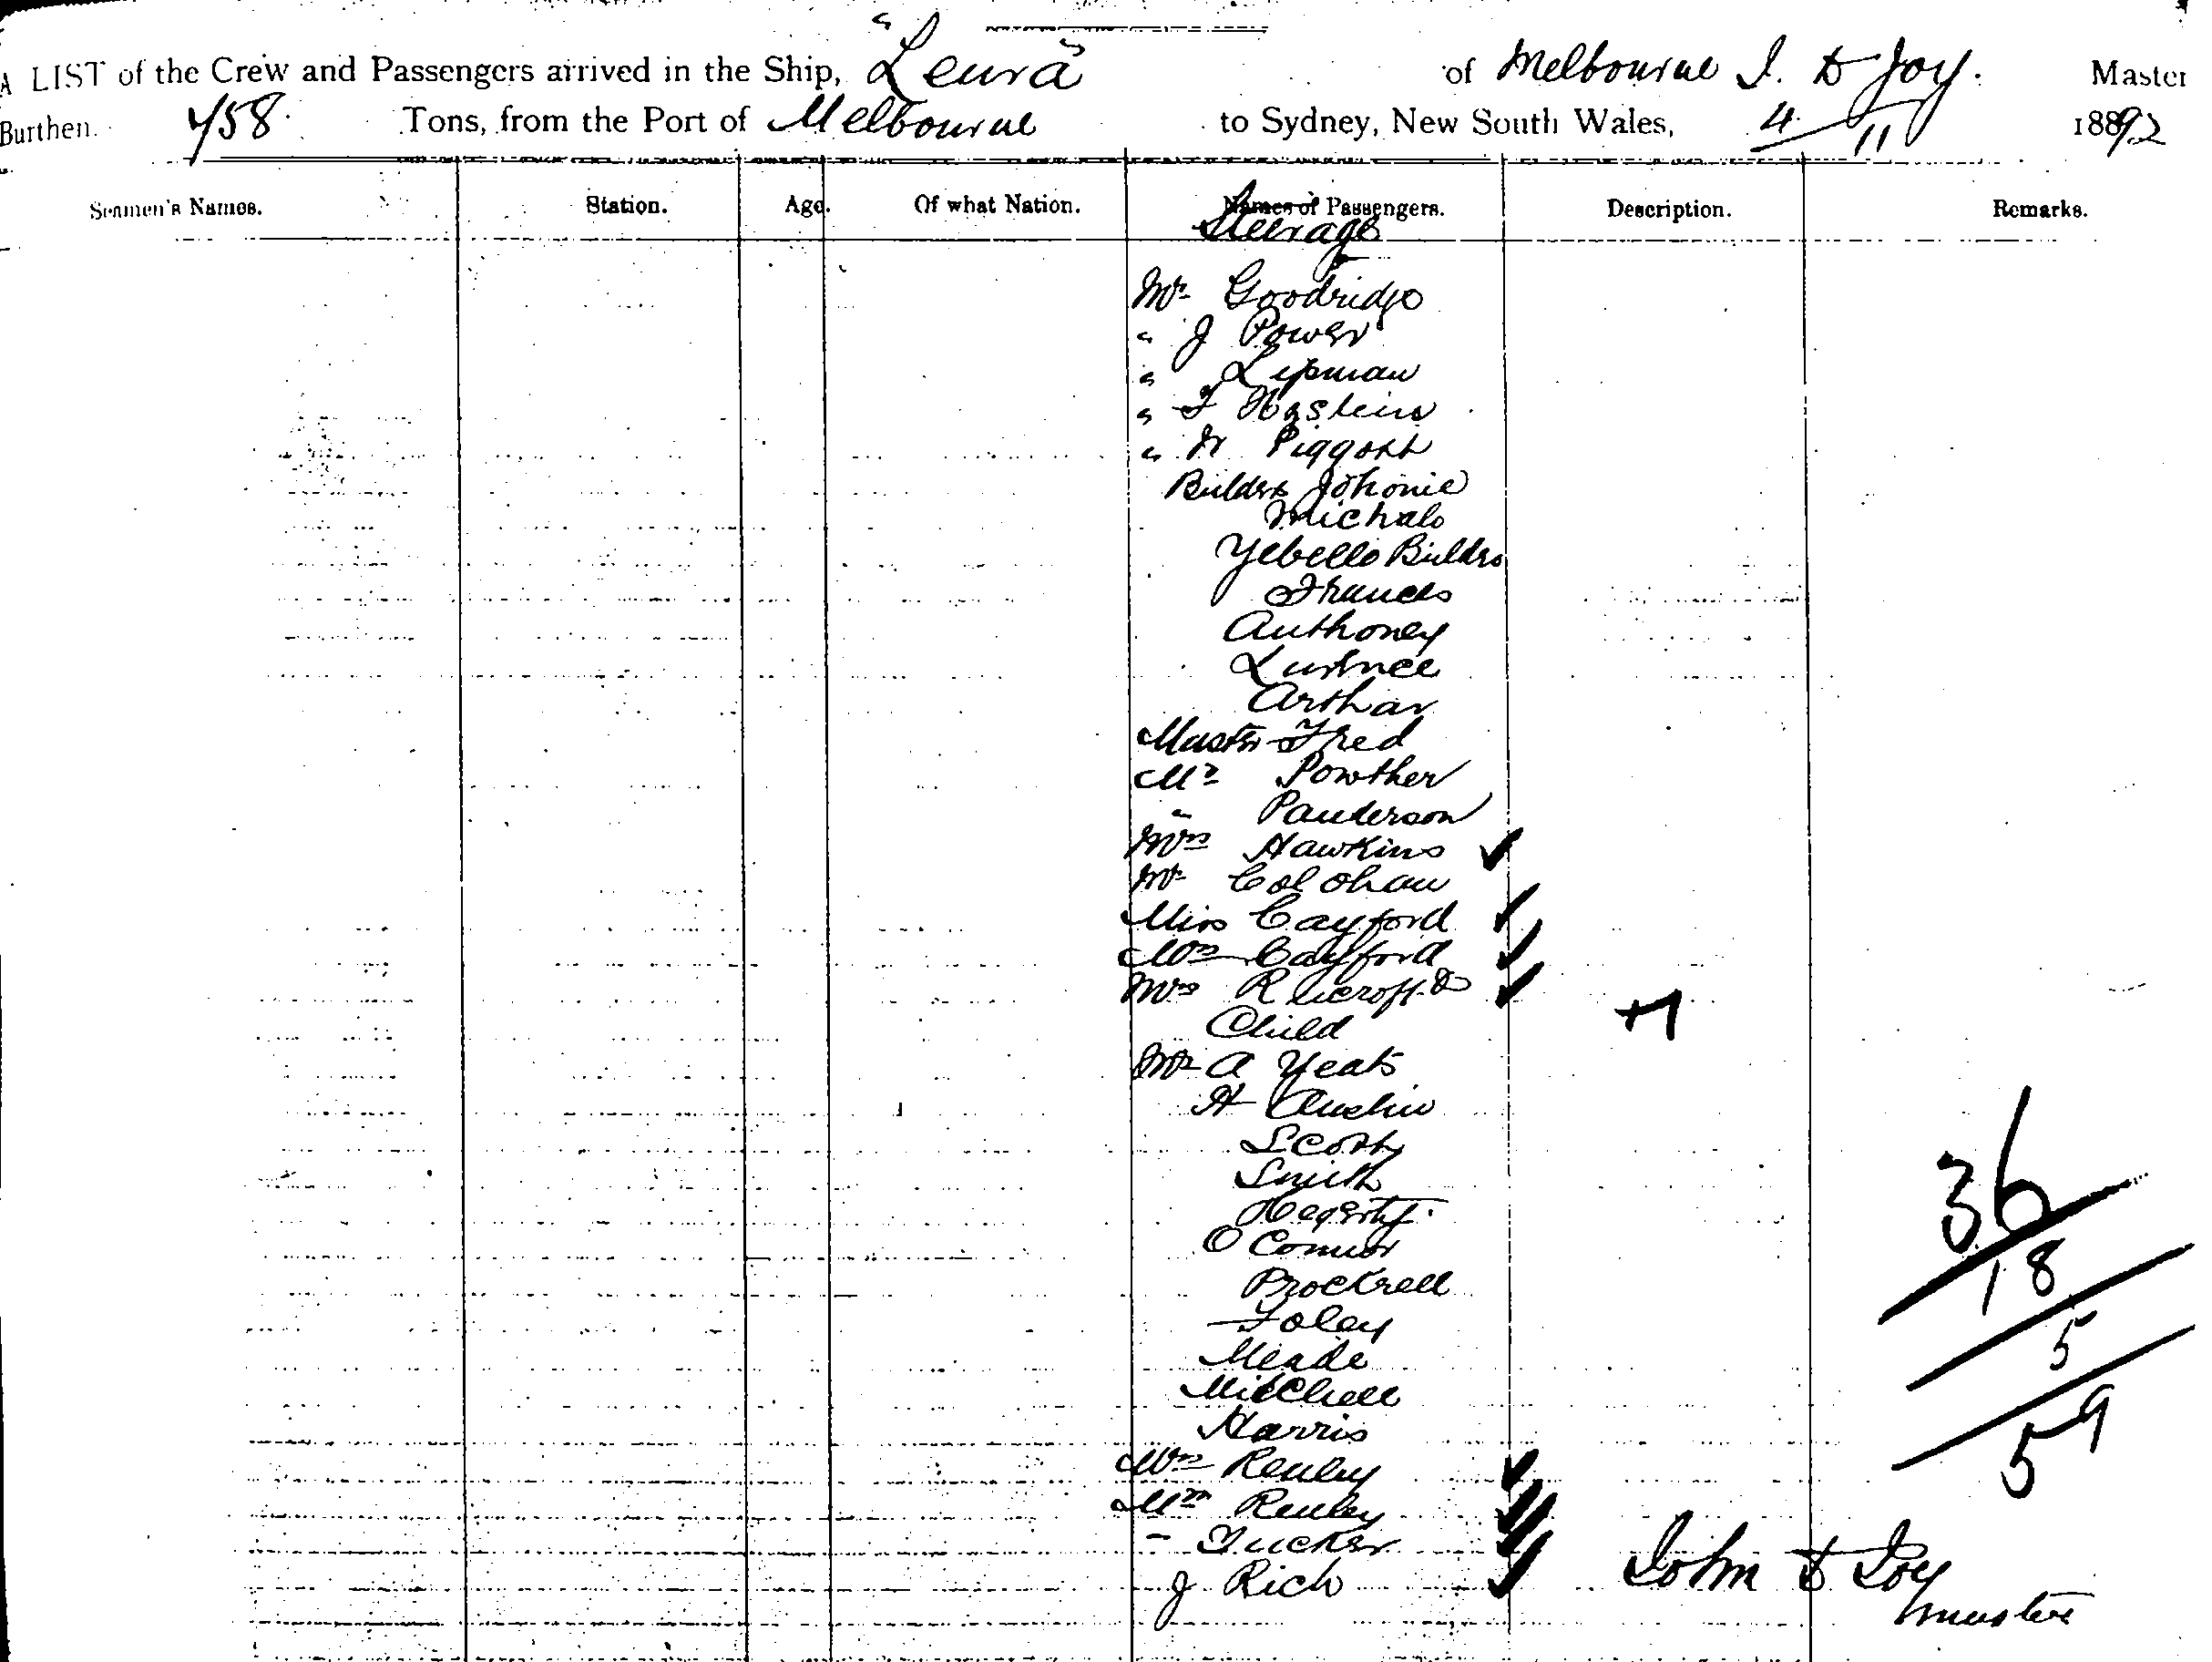 A LIST of the Crew and Passengers arrived in the Ship, "Leura" of Melbourne J. D Joy. Master
Burthen. 458 Tons, from the Port of Melbourne to Sydney, New South Wales, 4/11 1892
Seamen's Names. Station. Age. Of what Nation. Names of Passengers. Description. Remarks.
Steerage
Mr Goodridge
" J Power
" Lipman
" T Hoskins
" W Piggott
Bulders Johonie
Michalo
Yebello Bulders
Frances
Anthoney
Lurence
Arthar
Master Fred
Mr Powther
" Panderson
Mrs Hawkins ✓
Mr Colohan
Miss Cayford ✓
Mrs Cayford ✓
Mrs Rycroft & ✓
Child +1
Mr A Yeats
H Austin
Scott
Smith
Hegerty
O Connor
Brockrell
Foley
Meade
Mitchell
Harris
Mrs Renley ✓
Mrs Renley ✓
" Tucker ✓
J Rich ✓
36
18
5
59
John D Joy
master